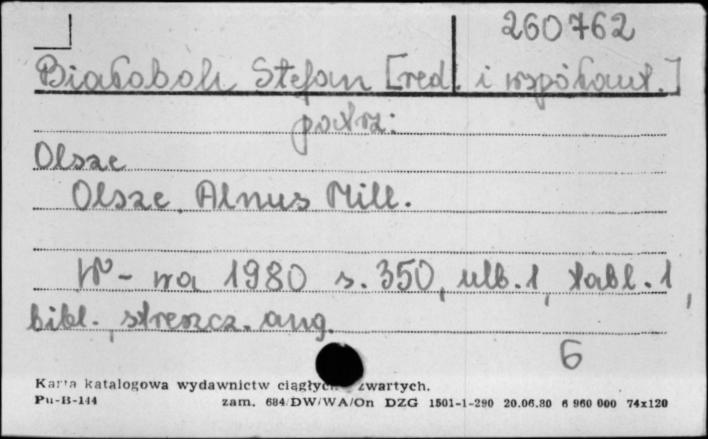 260762
Białobok Stefan [red. i współaut.]
patrz:
Olsze
Olsze Alnus Mill.
W-wa 1980 s. 350, ulb. 1, tabl. 1,
bibl., streszcz. ang.
6
Karta katalogowa wydawnictw ciągłych zwartych.
Pu-B-144 zam. 684/DW/WA/On DZG 1501-1-290 20.06.80 6 960 000 74x120